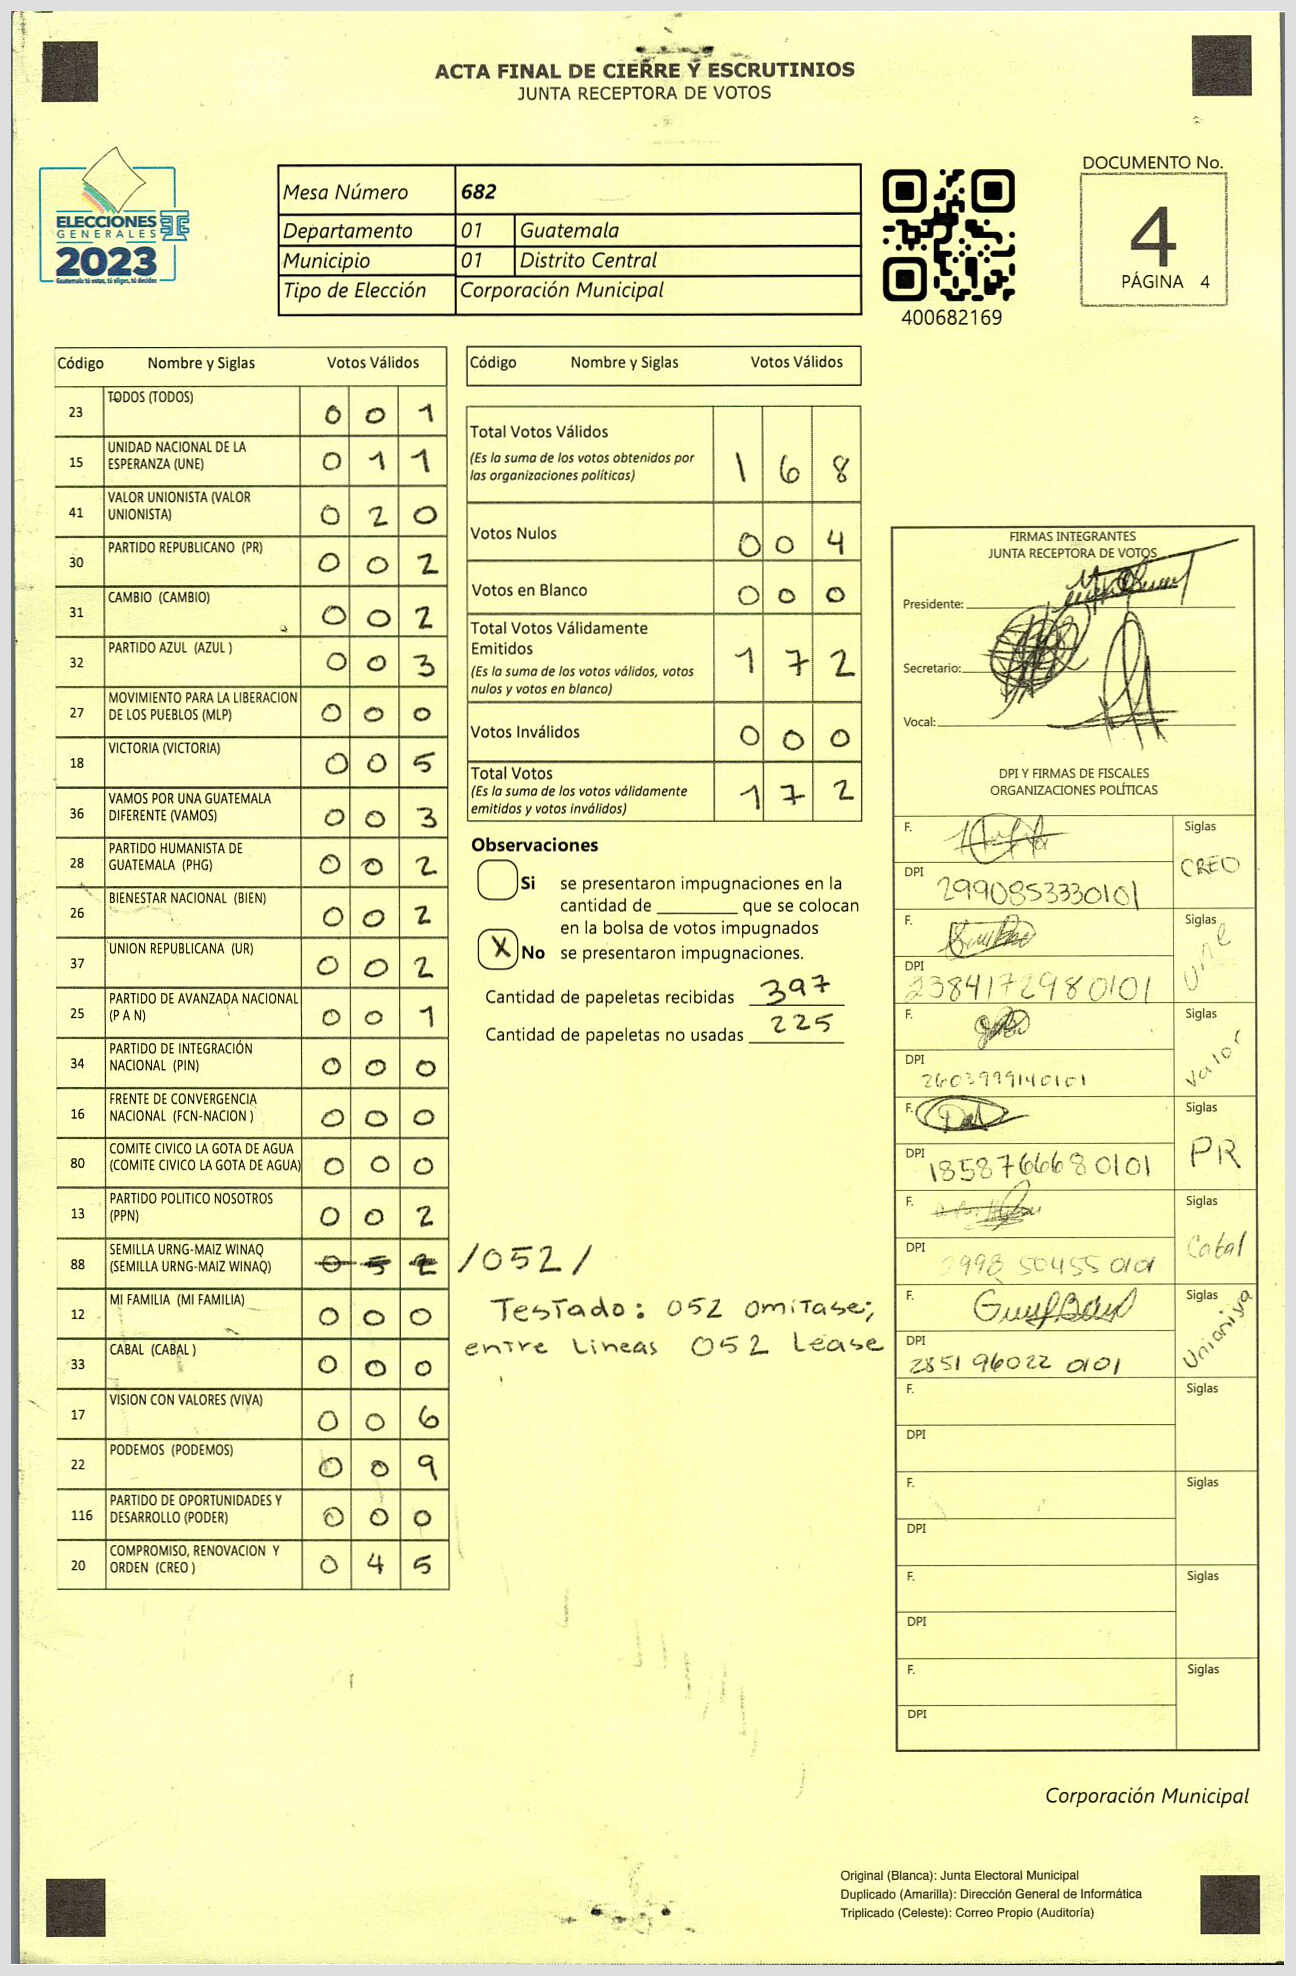 ACTA FINAL DE CIERRE Y ESCRUTINIOS
JUNTA RECEPTORA DE VOTOS
ELECCIONES
GENERALES
2023
Guatemala tú votas, tú eliges, tú decides
Mesa Número 682
Departamento 01 Guatemala
Municipio 01 Distrito Central
Tipo de Elección Corporación Municipal
400682169
DOCUMENTO No.
4
PÁGINA 4
Código Nombre y Siglas Votos Válidos
23 TODOS (TODOS) 0 0 1
15 UNIDAD NACIONAL DE LA
ESPERANZA (UNE) 0 1 1
41 VALOR UNIONISTA (VALOR
UNIONISTA) 0 2 0
30 PARTIDO REPUBLICANO (PR) 0 0 2
31 CAMBIO (CAMBIO) 0 0 2
32 PARTIDO AZUL (AZUL ) 0 0 3
27 MOVIMIENTO PARA LA LIBERACION
DE LOS PUEBLOS (MLP) 0 0 0
18 VICTORIA (VICTORIA) 0 0 5
36 VAMOS POR UNA GUATEMALA
DIFERENTE (VAMOS) 0 0 3
28 PARTIDO HUMANISTA DE
GUATEMALA (PHG) 0 0 2
26 BIENESTAR NACIONAL (BIEN) 0 0 2
37 UNION REPUBLICANA (UR) 0 0 2
25 PARTIDO DE AVANZADA NACIONAL
(P A N) 0 0 1
34 PARTIDO DE INTEGRACIÓN
NACIONAL (PIN) 0 0 0
16 FRENTE DE CONVERGENCIA
NACIONAL (FCN-NACION ) 0 0 0
80 COMITE CIVICO LA GOTA DE AGUA
(COMITE CIVICO LA GOTA DE AGUA) 0 0 0
13 PARTIDO POLITICO NOSOTROS
(PPN) 0 0 2
88 SEMILLA URNG-MAIZ WINAQ
(SEMILLA URNG-MAIZ WINAQ) 0 5 2 /052/
12 MI FAMILIA (MI FAMILIA) 0 0 0
33 CABAL (CABAL ) 0 0 0
17 VISION CON VALORES (VIVA) 0 0 6
22 PODEMOS (PODEMOS) 0 0 9
116 PARTIDO DE OPORTUNIDADES Y
DESARROLLO (PODER) 0 0 0
20 COMPROMISO, RENOVACION Y
ORDEN (CREO ) 0 4 5
Código Nombre y Siglas Votos Válidos
Total Votos Válidos
(Es la suma de los votos obtenidos por
las organizaciones políticas) 1 6 8
Votos Nulos 0 0 4
Votos en Blanco 0 0 0
Total Votos Válidamente
Emitidos
(Es la suma de los votos válidos, votos
nulos y votos en blanco) 1 7 2
Votos Inválidos 0 0 0
Total Votos
(Es la suma de los votos válidamente
emitidos y votos inválidos) 1 7 2
Observaciones
Si se presentaron impugnaciones en la
cantidad de ________ que se colocan
en la bolsa de votos impugnados
X No se presentaron impugnaciones.
Cantidad de papeletas recibidas 397
Cantidad de papeletas no usadas 225
Testado: 052 omitase;
entre lineas 052 Lease
FIRMAS INTEGRANTES
JUNTA RECEPTORA DE VOTOS
Presidente:
Secretario:
Vocal:
DPI Y FIRMAS DE FISCALES
ORGANIZACIONES POLÍTICAS
F. Siglas
CREO
DPI 2990853330101
F. Siglas
Une
DPI 2384172980101
F. Siglas
Valor
DPI 2603999140101
F. Siglas
PR
DPI 1858766680101
F. Siglas
Cabal
DPI 2998 50455 0101
F. Siglas
Unionista
DPI 2851 96022 0101
F. Siglas
DPI
F. Siglas
DPI
F. Siglas
DPI
F. Siglas
DPI
Corporación Municipal
Original (Blanca): Junta Electoral Municipal
Duplicado (Amarilla): Dirección General de Informática
Triplicado (Celeste): Correo Propio (Auditoría)